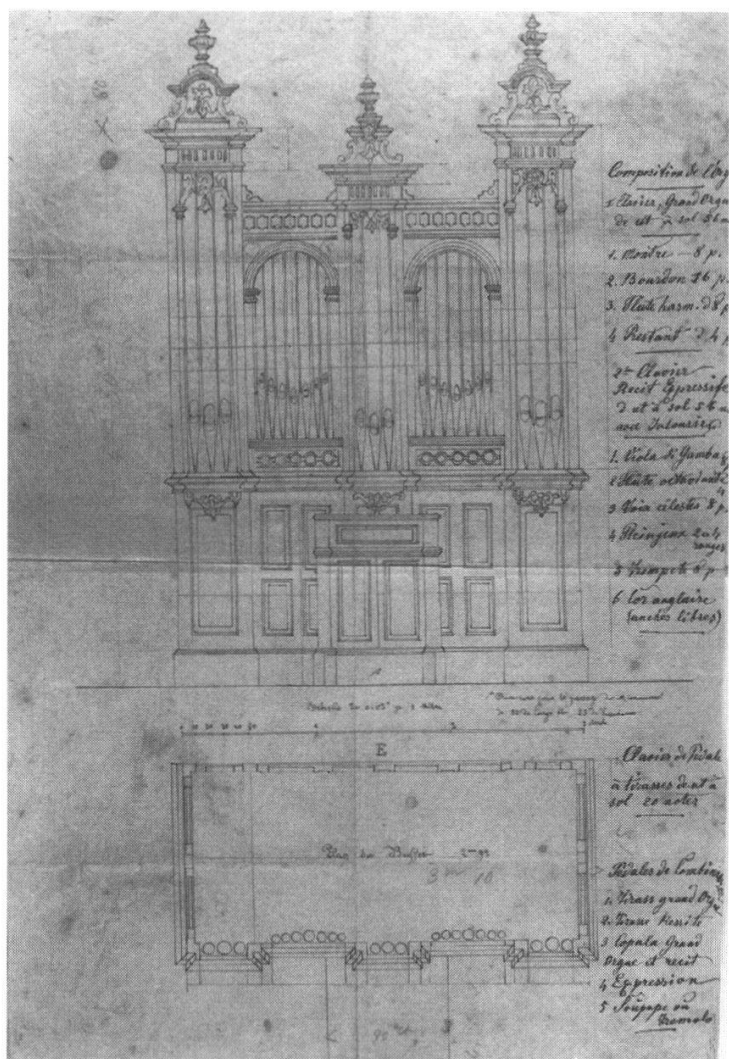 Composition de l'Org
1 Clavier, Grand Orgu
de ut à sol 56 n
1. Montre — 8 p.
2. Bourdon 16 p.
3. Flûte harm. d 8 p
4 Prestant d 4 p
2e Clavier
Recit Expressife
d ut à sol 56 n
avec Jalousies
1. Viola di Gamba 8
2 Flûte octaviante 4
3 Voix célestes 8 p.
4 Pleinjeux 2 à 4
ranges
5 Trompete 8 p
6 Cor anglaise
(anches libres)
E
Clavier de Pédale
à tirasses de ut à
sol 20 notes
Plan du Buffet 2m 93
3m 10
Pédales de Combin
1. Tirass grand Org
2. Tirass Ressite
3 Copula Grand
Orgue et recit
4 Expression
5 Soupape ou
Tremolo